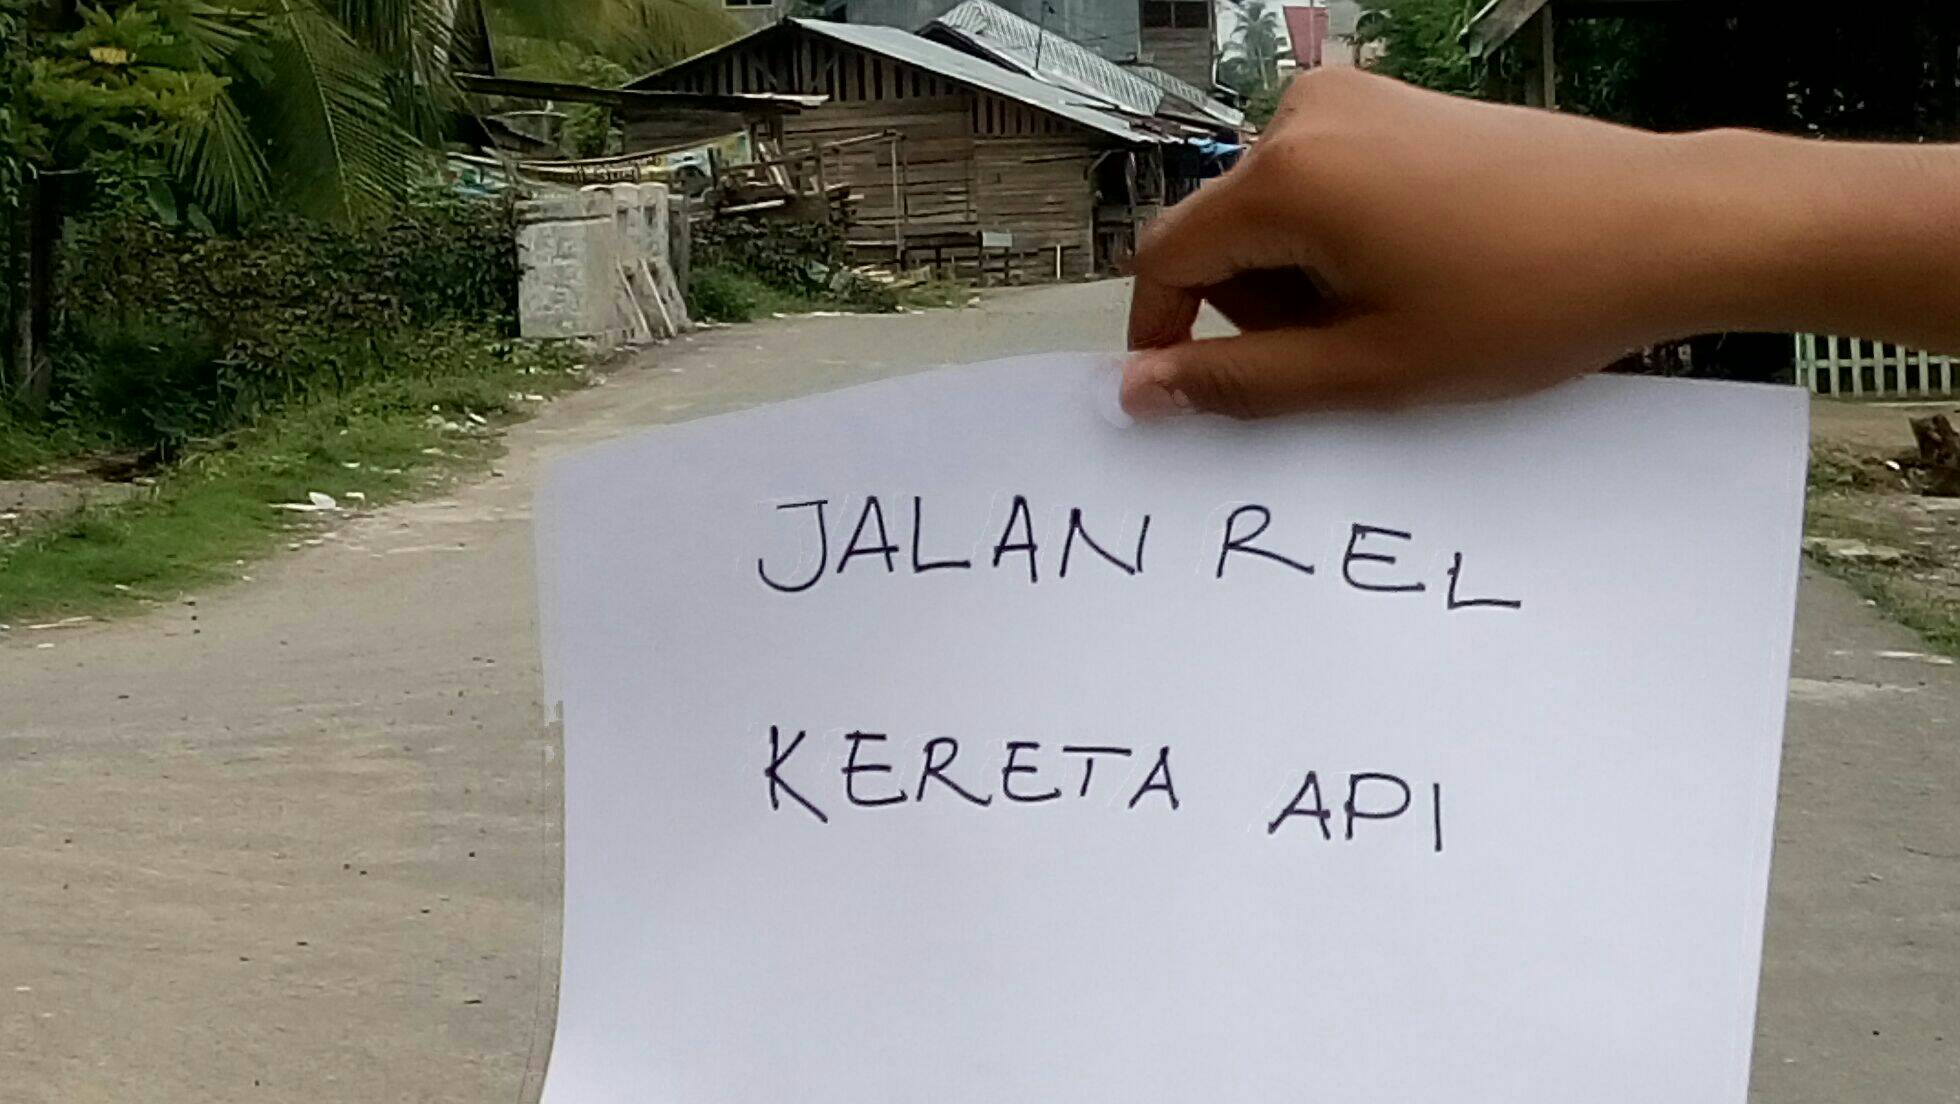 JALAN REL
KERETA API